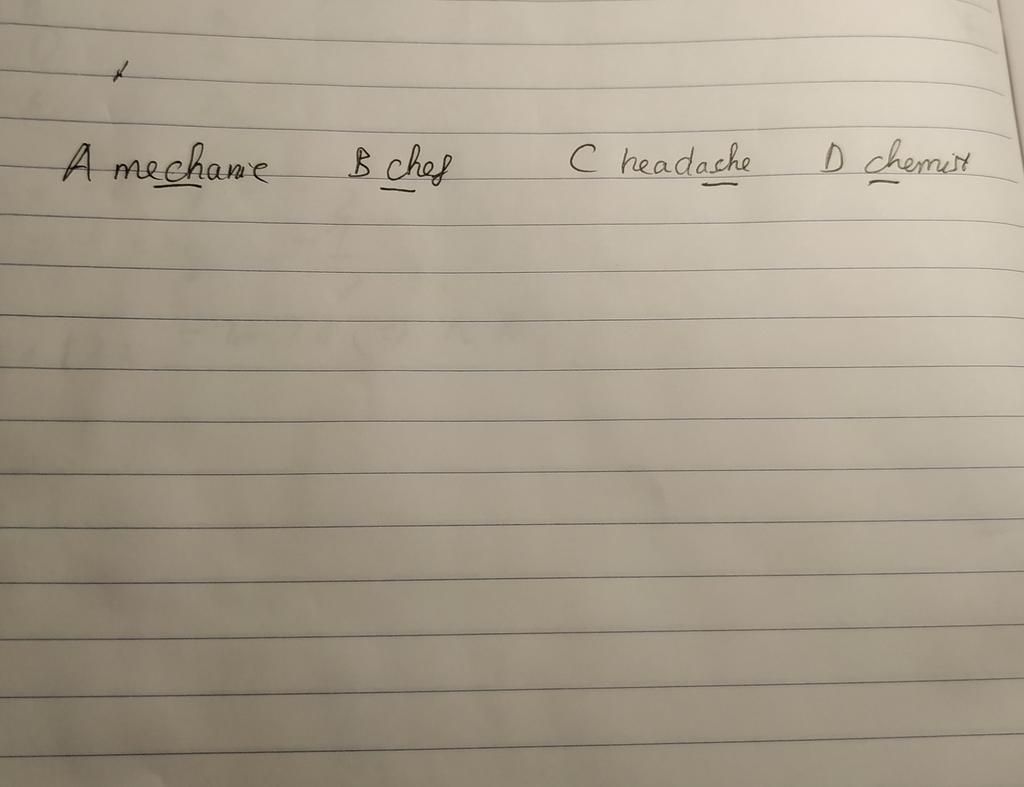 A mechanic B chef C headache D chemist